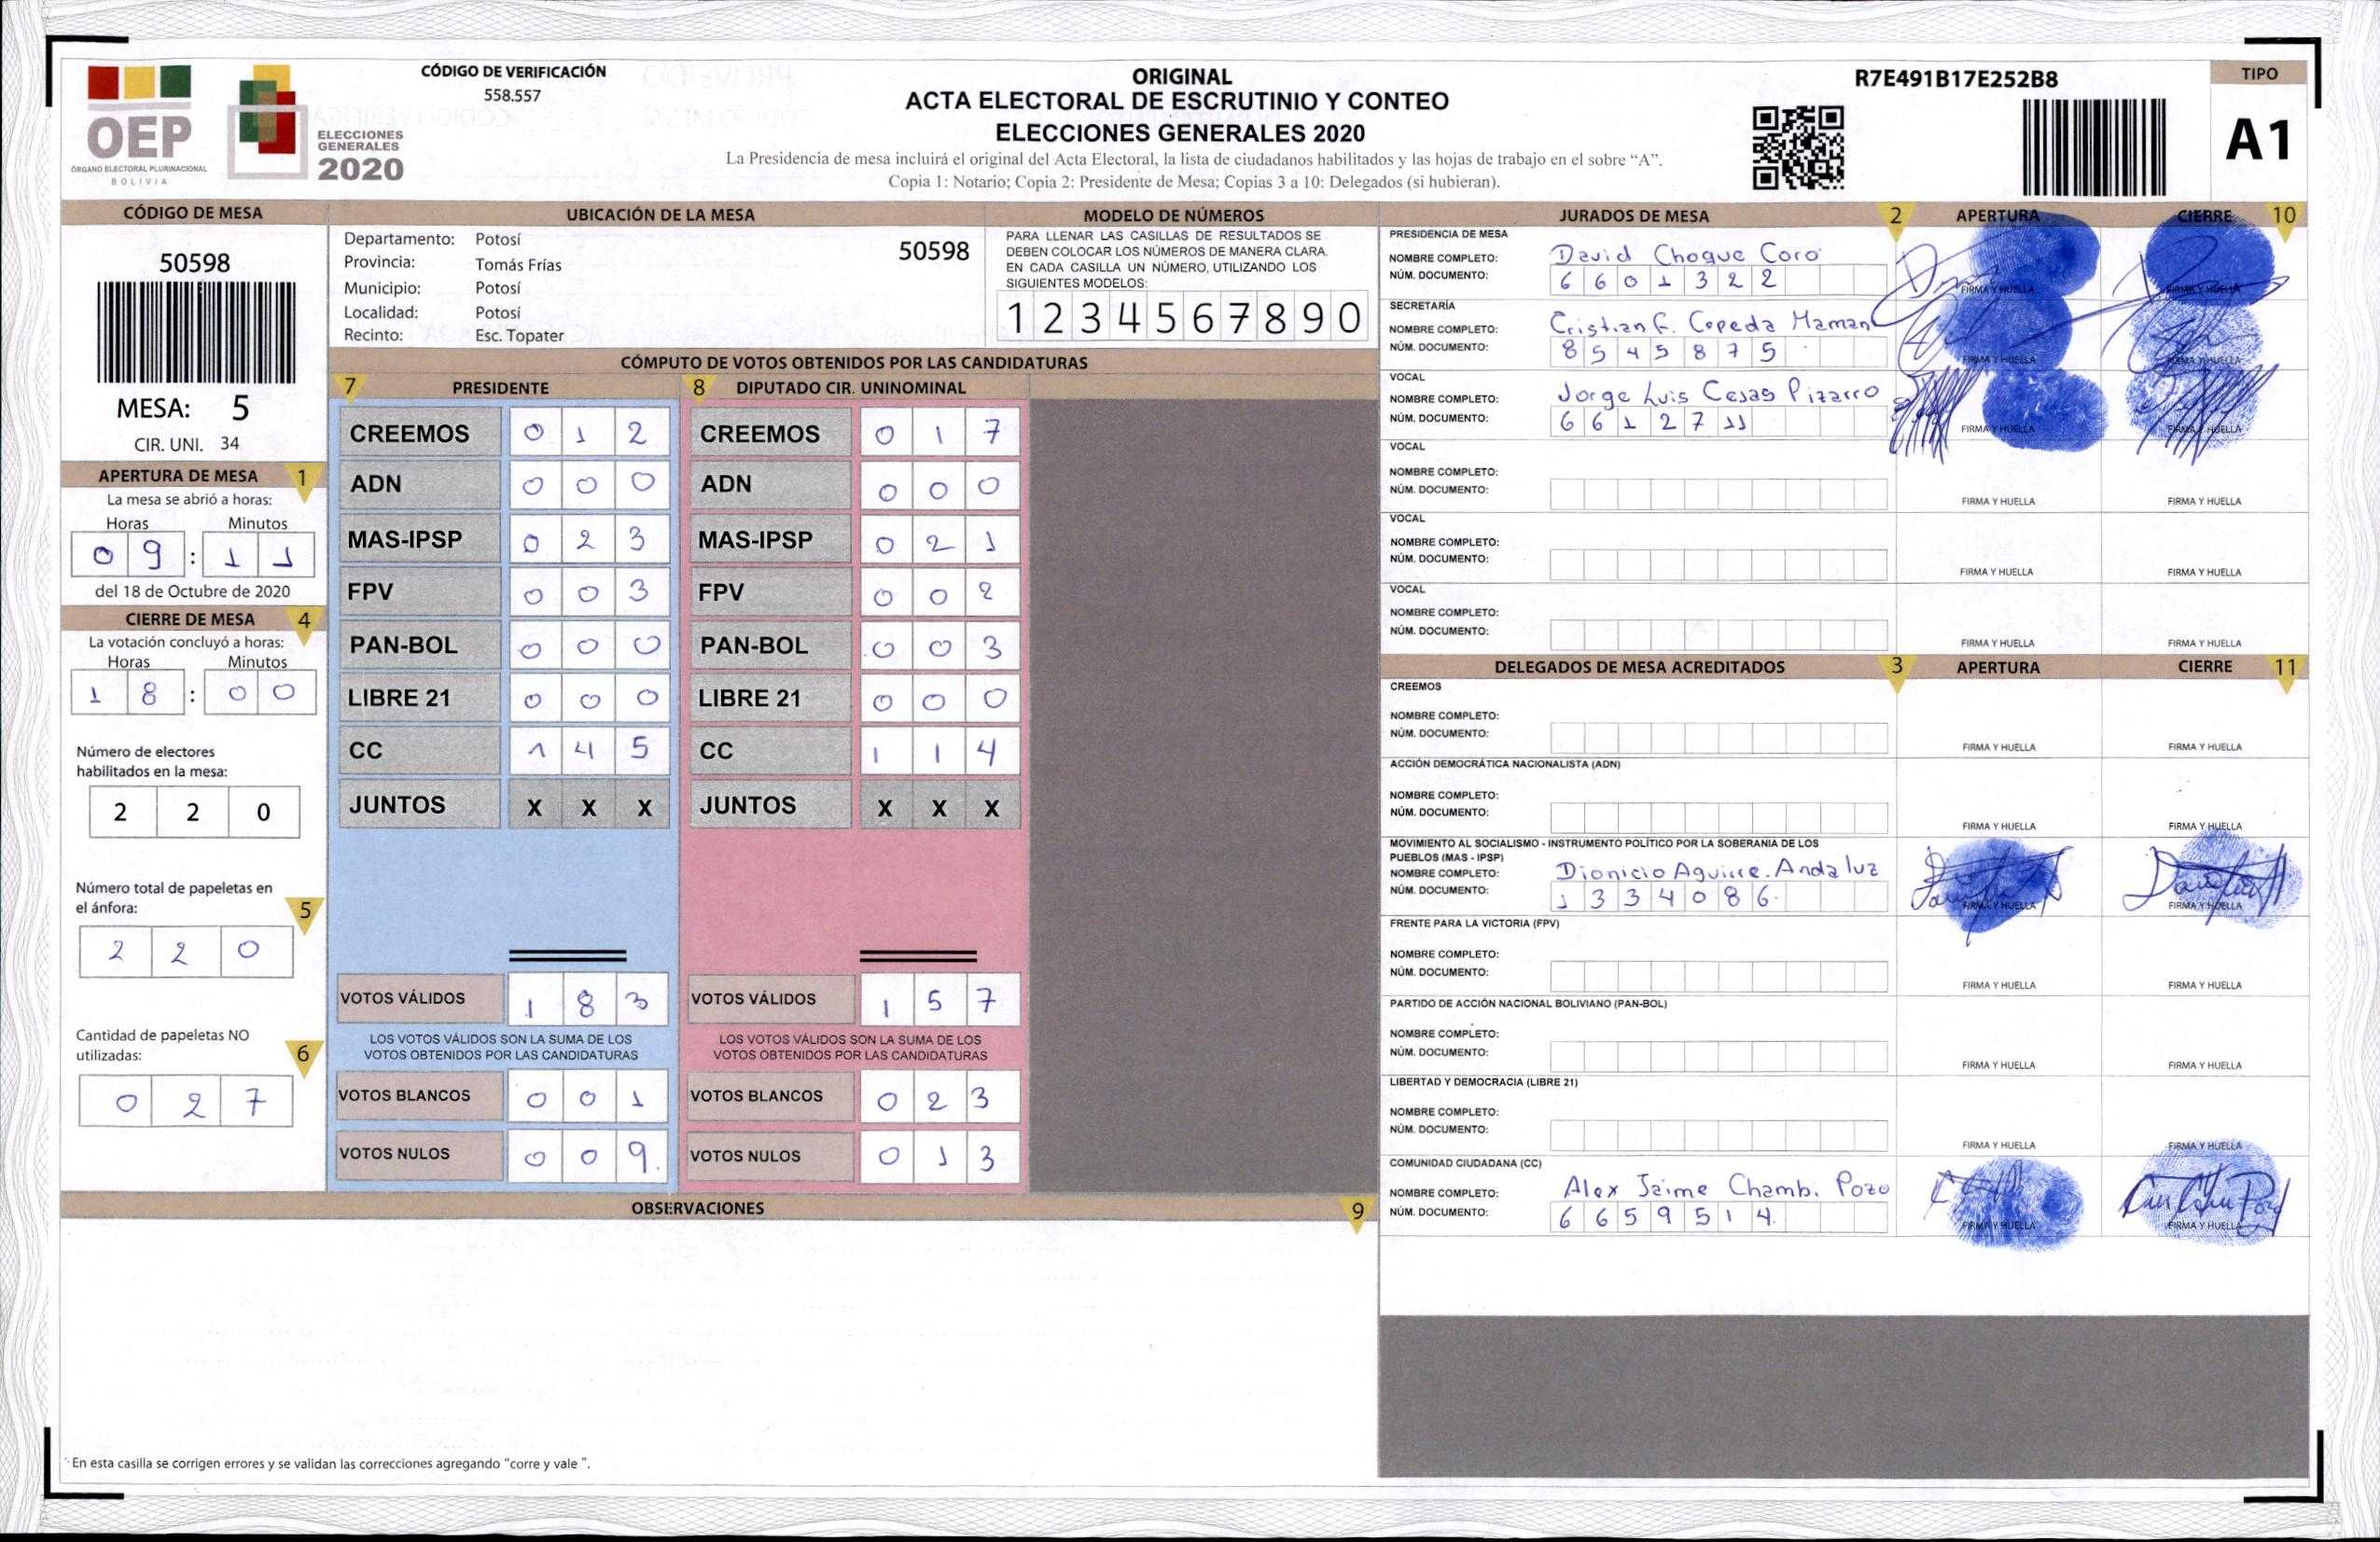 OEP
ÓRGANO ELECTORAL PLURINACIONAL
BOLIVIA
ELECCIONES
GENERALES
2020
CÓDIGO DE VERIFICACIÓN
558.557
ORIGINAL
ACTA ELECTORAL DE ESCRUTINIO Y CONTEO
ELECCIONES GENERALES 2020
La Presidencia de mesa incluirá el original del Acta Electoral, la lista de ciudadanos habilitados y las hojas de trabajo en el sobre “A”.
Copia 1: Notario; Copia 2: Presidente de Mesa; Copias 3 a 10: Delegados (si hubieran).
R7E491B17E252B8
TIPO
A1
CÓDIGO DE MESA
50598
MESA: 5
CIR. UNI. 34
APERTURA DE MESA 1
La mesa se abrió a horas:
Horas Minutos
09 : 11
del 18 de Octubre de 2020
CIERRE DE MESA 4
La votación concluyó a horas:
Horas Minutos
18 : 00
Número de electores
habilitados en la mesa:
2 2 0
Número total de papeletas en
el ánfora: 5
2 2 0
Cantidad de papeletas NO
utilizadas: 6
0 2 7
UBICACIÓN DE LA MESA
Departamento: Potosí 50598
Provincia: Tomás Frías
Municipio: Potosí
Localidad: Potosí
Recinto: Esc. Topater
MODELO DE NÚMEROS
PARA LLENAR LAS CASILLAS DE RESULTADOS SE
DEBEN COLOCAR LOS NÚMEROS DE MANERA CLARA.
EN CADA CASILLA UN NÚMERO, UTILIZANDO LOS
SIGUIENTES MODELOS:
1 2 3 4 5 6 7 8 9 0
CÓMPUTO DE VOTOS OBTENIDOS POR LAS CANDIDATURAS
7 PRESIDENTE
CREEMOS 0 1 2
ADN 0 0 0
MAS-IPSP 0 2 3
FPV 0 0 3
PAN-BOL 0 0 0
LIBRE 21 0 0 0
CC 1 4 5
JUNTOS X X X
VOTOS VÁLIDOS 1 8 3
LOS VOTOS VÁLIDOS SON LA SUMA DE LOS
VOTOS OBTENIDOS POR LAS CANDIDATURAS
VOTOS BLANCOS 0 0 1
VOTOS NULOS 0 0 9.
8 DIPUTADO CIR. UNINOMINAL
CREEMOS 0 1 7
ADN 0 0 0
MAS-IPSP 0 2 1
FPV 0 0 2
PAN-BOL 0 0 3
LIBRE 21 0 0 0
CC 1 1 4
JUNTOS X X X
VOTOS VÁLIDOS 1 5 7
LOS VOTOS VÁLIDOS SON LA SUMA DE LOS
VOTOS OBTENIDOS POR LAS CANDIDATURAS
VOTOS BLANCOS 0 2 3
VOTOS NULOS 0 1 3
OBSERVACIONES 9
En esta casilla se corrigen errores y se validan las correcciones agregando "corre y vale ".
JURADOS DE MESA 2 APERTURA CIERRE 10
PRESIDENCIA DE MESA
NOMBRE COMPLETO: David Choque Coro
NÚM. DOCUMENTO: 6 6 0 1 3 2 2
FIRMA Y HUELLA FIRMA Y HUELLA
SECRETARÍA
NOMBRE COMPLETO: Cristian F. Cepeda Maman
NÚM. DOCUMENTO: 8 5 4 5 8 7 5
FIRMA Y HUELLA FIRMA Y HUELLA
VOCAL
NOMBRE COMPLETO: Jorge Luis Cesas Pizarro
NÚM. DOCUMENTO: 6 6 1 2 7 11
FIRMA Y HUELLA FIRMA Y HUELLA
VOCAL
NOMBRE COMPLETO:
NÚM. DOCUMENTO:
FIRMA Y HUELLA FIRMA Y HUELLA
VOCAL
NOMBRE COMPLETO:
NÚM. DOCUMENTO:
FIRMA Y HUELLA FIRMA Y HUELLA
VOCAL
NOMBRE COMPLETO:
NÚM. DOCUMENTO:
FIRMA Y HUELLA FIRMA Y HUELLA
DELEGADOS DE MESA ACREDITADOS 3 APERTURA CIERRE 11
CREEMOS
NOMBRE COMPLETO:
NÚM. DOCUMENTO:
FIRMA Y HUELLA FIRMA Y HUELLA
ACCIÓN DEMOCRÁTICA NACIONALISTA (ADN)
NOMBRE COMPLETO:
NÚM. DOCUMENTO:
FIRMA Y HUELLA FIRMA Y HUELLA
MOVIMIENTO AL SOCIALISMO - INSTRUMENTO POLÍTICO POR LA SOBERANIA DE LOS
PUEBLOS (MAS - IPSP)
NOMBRE COMPLETO: Dionicio Aguirre. Andaluz
NÚM. DOCUMENTO: 1 3 3 4 0 8 6.
FIRMA Y HUELLA FIRMA Y HUELLA
FRENTE PARA LA VICTORIA (FPV)
NOMBRE COMPLETO:
NÚM. DOCUMENTO:
FIRMA Y HUELLA FIRMA Y HUELLA
PARTIDO DE ACCIÓN NACIONAL BOLIVIANO (PAN-BOL)
NOMBRE COMPLETO:
NÚM. DOCUMENTO:
FIRMA Y HUELLA FIRMA Y HUELLA
LIBERTAD Y DEMOCRACIA (LIBRE 21)
NOMBRE COMPLETO:
NÚM. DOCUMENTO:
FIRMA Y HUELLA FIRMA Y HUELLA
COMUNIDAD CIUDADANA (CC)
NOMBRE COMPLETO: Alex Jaime Chambi Pozo
NÚM. DOCUMENTO: 6 6 5 9 5 1 4.
FIRMA Y HUELLA FIRMA Y HUELLA